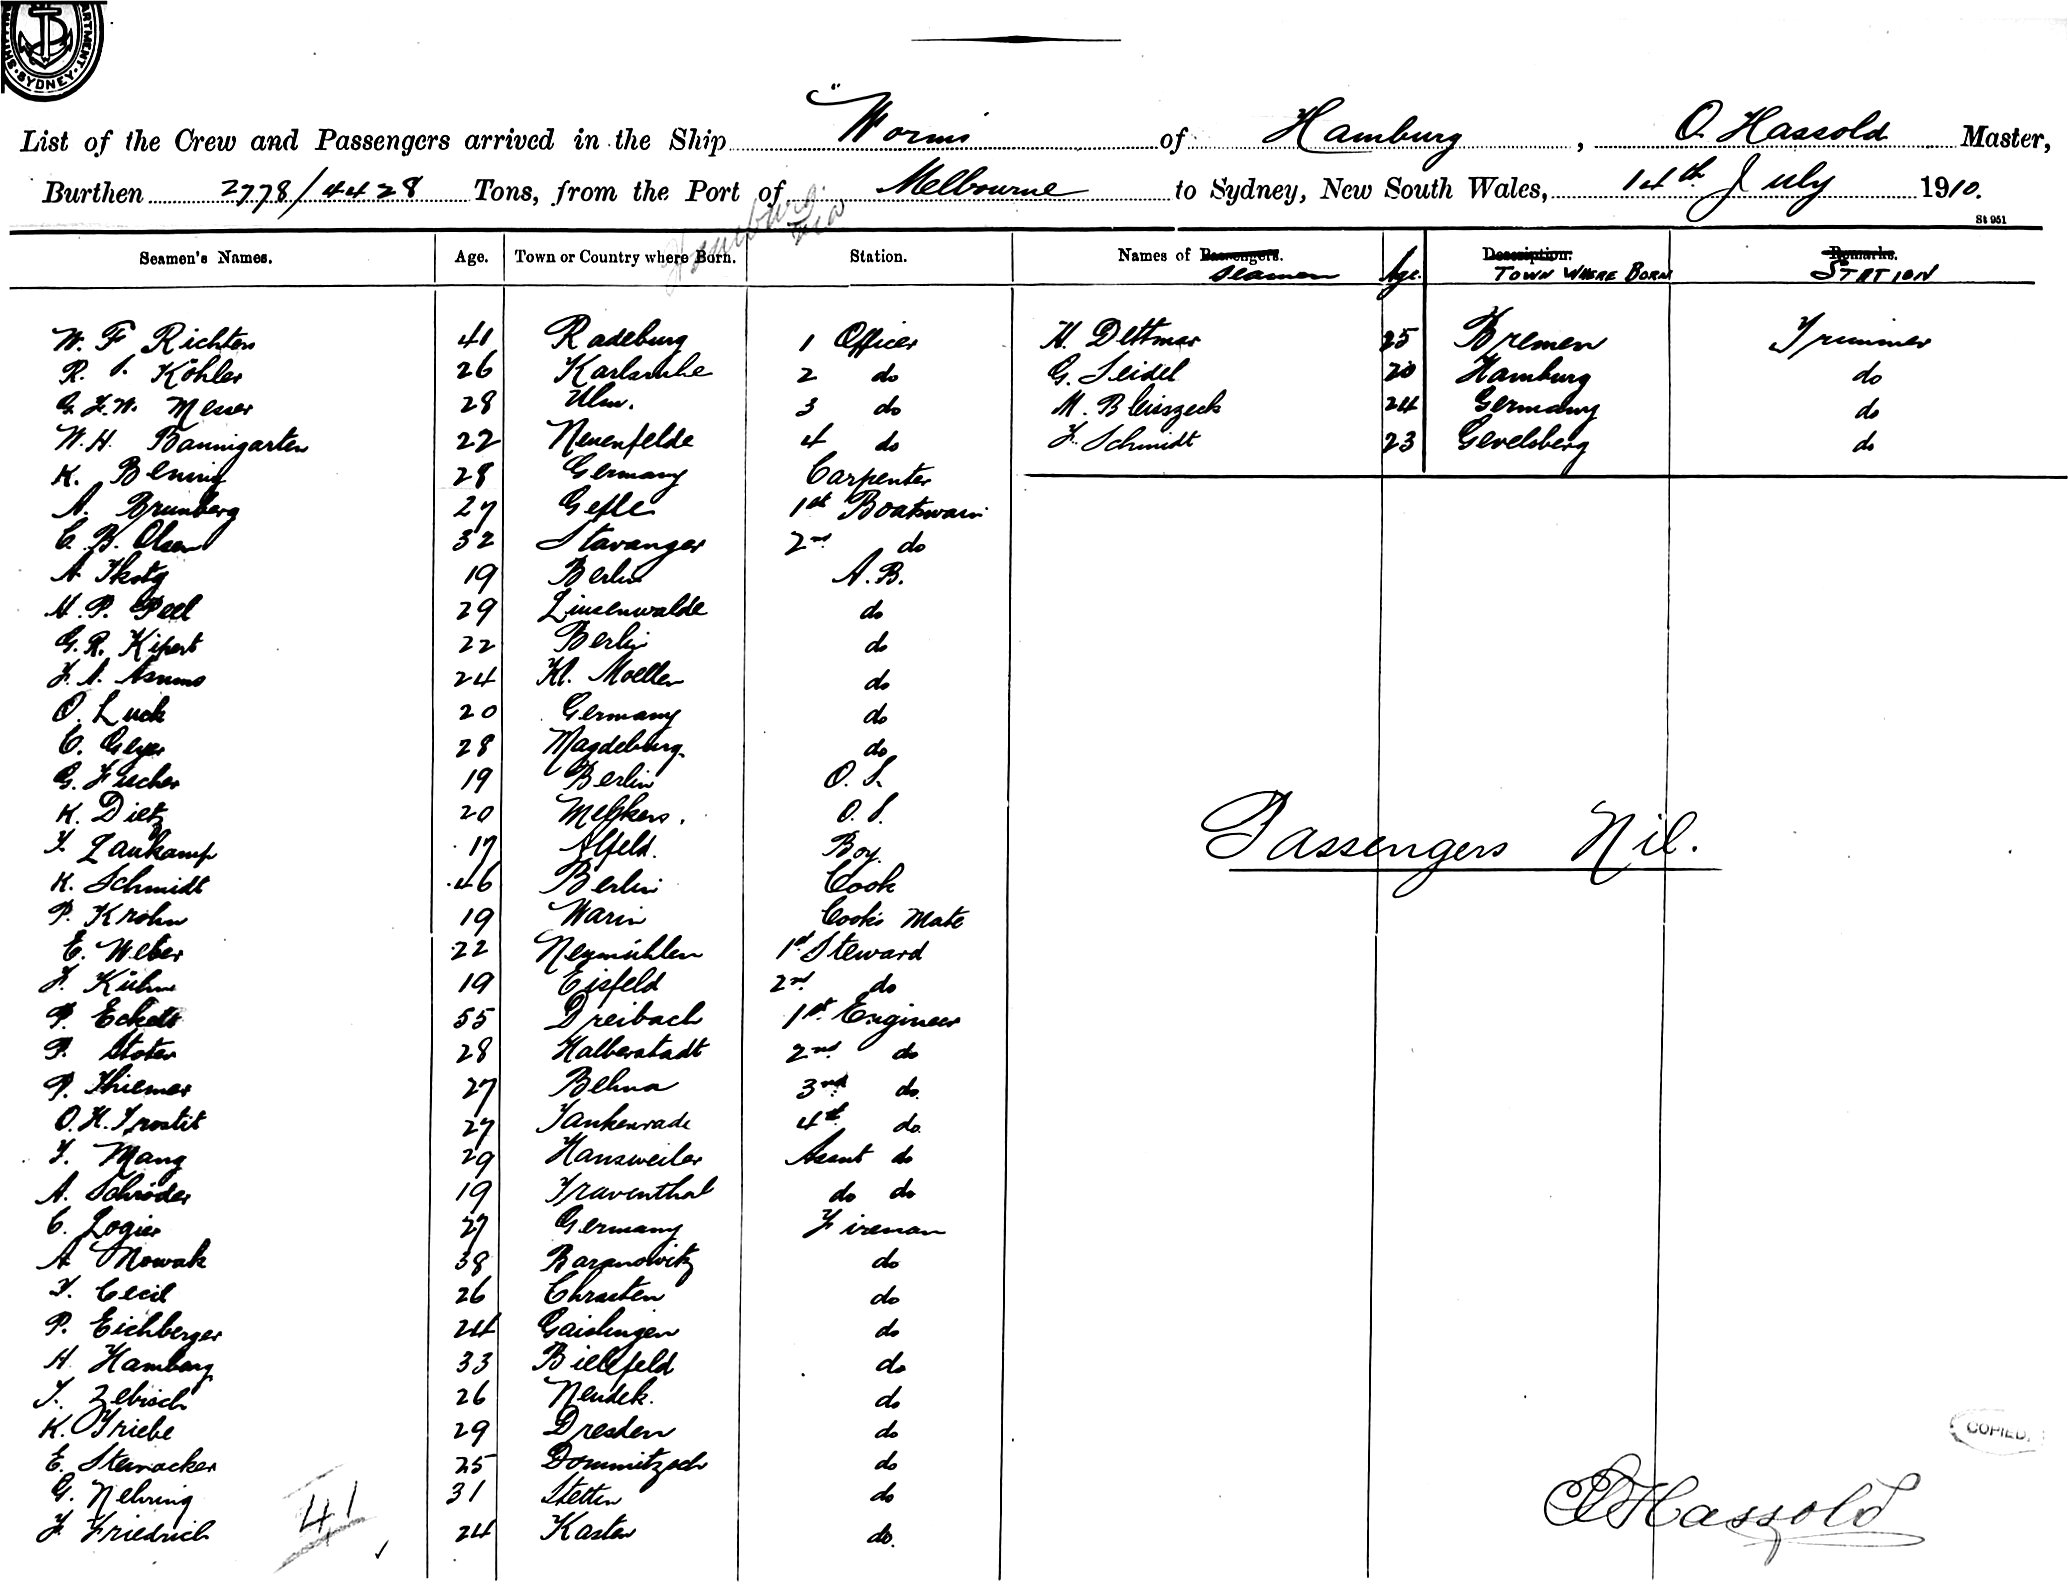 SYDNEY
"Worms
List of the Crew and Passengers arrived in the Ship Worms of Hamburg, O. Hassold Master,
Burthen 2778/4428 Tons, from the Port of Melbourne to Sydney, New South Wales, 14th July 1910.
Hamburg via
St 951
Seamen's Names. Age. Town or Country where Born. Station. Names of Passengers. Seamen Age. Description. TOWN WHERE BORN Remarks. STATION
W. F Richters 41 Radeburg 1 Officer H. Dettmar 25 Bremen Trimmer
R. Köhler 26 Karlsruhe 2 do G. Seidel 20 Hamburg do
G. F. W. Messer 28 Ulm. 3 do M. Bleiszeck 24 Germany do
W. H. Baumgarten 22 Neuenfelde 4 do F. Schmidt 23 Gevelsberg do
K. Bening 28 Germany Carpenter
A. Brunberg 27 Gefle 1st Boatswain
C. B. Olsen 32 Stavanger 2nd do
A. 19 Berlin A.B.
H. P. Peel 29 Linsenwalde do
G. R. Kipert 22 Berlin do
F. A. Asmus 24 Kl. Moellen do
O. Luck 20 Germany do
C. Geyer 28 Magdeburg. do
G. Fischer 19 Berlin O. S.
K. Dietz 20 O. S.
F. Laukamp 17 Alfeld. Boy.
K. Schmidt 46 Berlin Cook
P. Krohn 19 Warin Cook's Mate
E. Weber 22 Neumühlen 1st Steward
F. Kühn 19 Eisfeld 2nd do
P. Eckelt 55 Dreibach 1st Engineer
P. Stoter 28 Halberstadt 2nd do
P. Thiemer 27 Behna 3rd do
O. H. Trostit 27 Tankenrade 4th do
F. Mang 29 Hansweiler Assnt do
A. Schröder 19 Traventhal do do
C. Logier 27 Germany Fireman
A Nowak 38 Baranowitz do
F. Cecil 26 Chrasten do
P. Eichberger 24 Gaislingen do
H. Hamburg 33 Bielefeld do
F. Zebisch 26 Neudek. do
K. Triebe 29 Dresden do
E. Steinacker 25 Dommitzsch do
G. Nehring 31 Stettin do
F. Friedrich 24 Kaster do.
41
Passengers Nil.
COPIED.
O Hassold